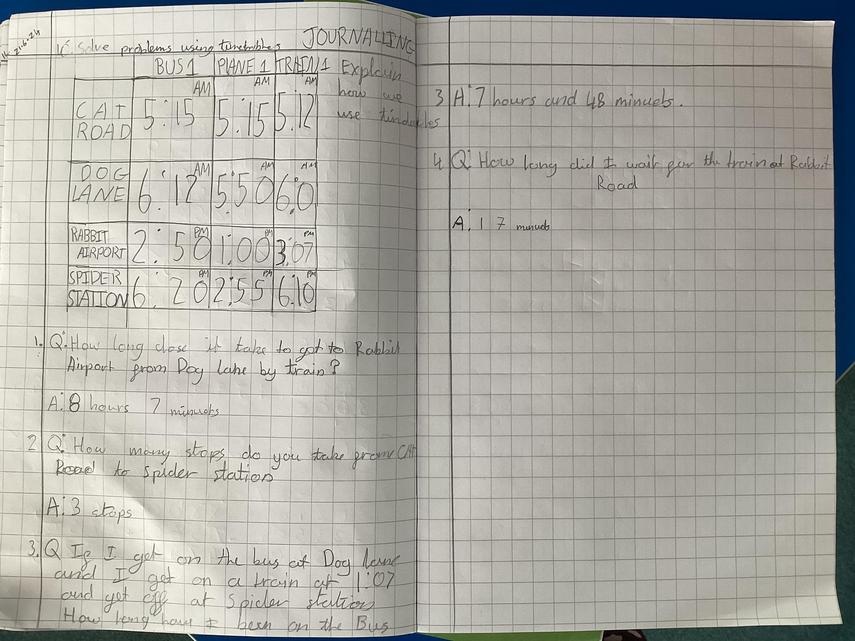 L: Solve problems using timetables JOURNALLING
BUS 1 PLANE 1 TRAIN 1
CAT ROAD 5:15 AM 5:15 AM 5:12 AM
DOG LANE 6:12 AM 5:50 AM 6:0 AM
RABBIT AIRPORT 2:50 PM 1:00 PM 3:07 PM
SPIDER STATION 6:20 PM 2:55 PM 6:10 PM
Explain
how we
use
1. Q: How long dose it take to got to Rabbit
Airport from Dog lane by train?
A: 8 hours 7 minuets
2 Q: How many stops do you take from CAt
Road to Spider station
A: 3 stops
3. Q If I get on the bus at Dog lane
and I get on a train at 1:07
and get off at Spider station
How long have I been on the Bus
3 A: 7 hours and 48 minuets.
4 Q: How long did I wait for the train at Rabbit
Road
A: 17 minuets